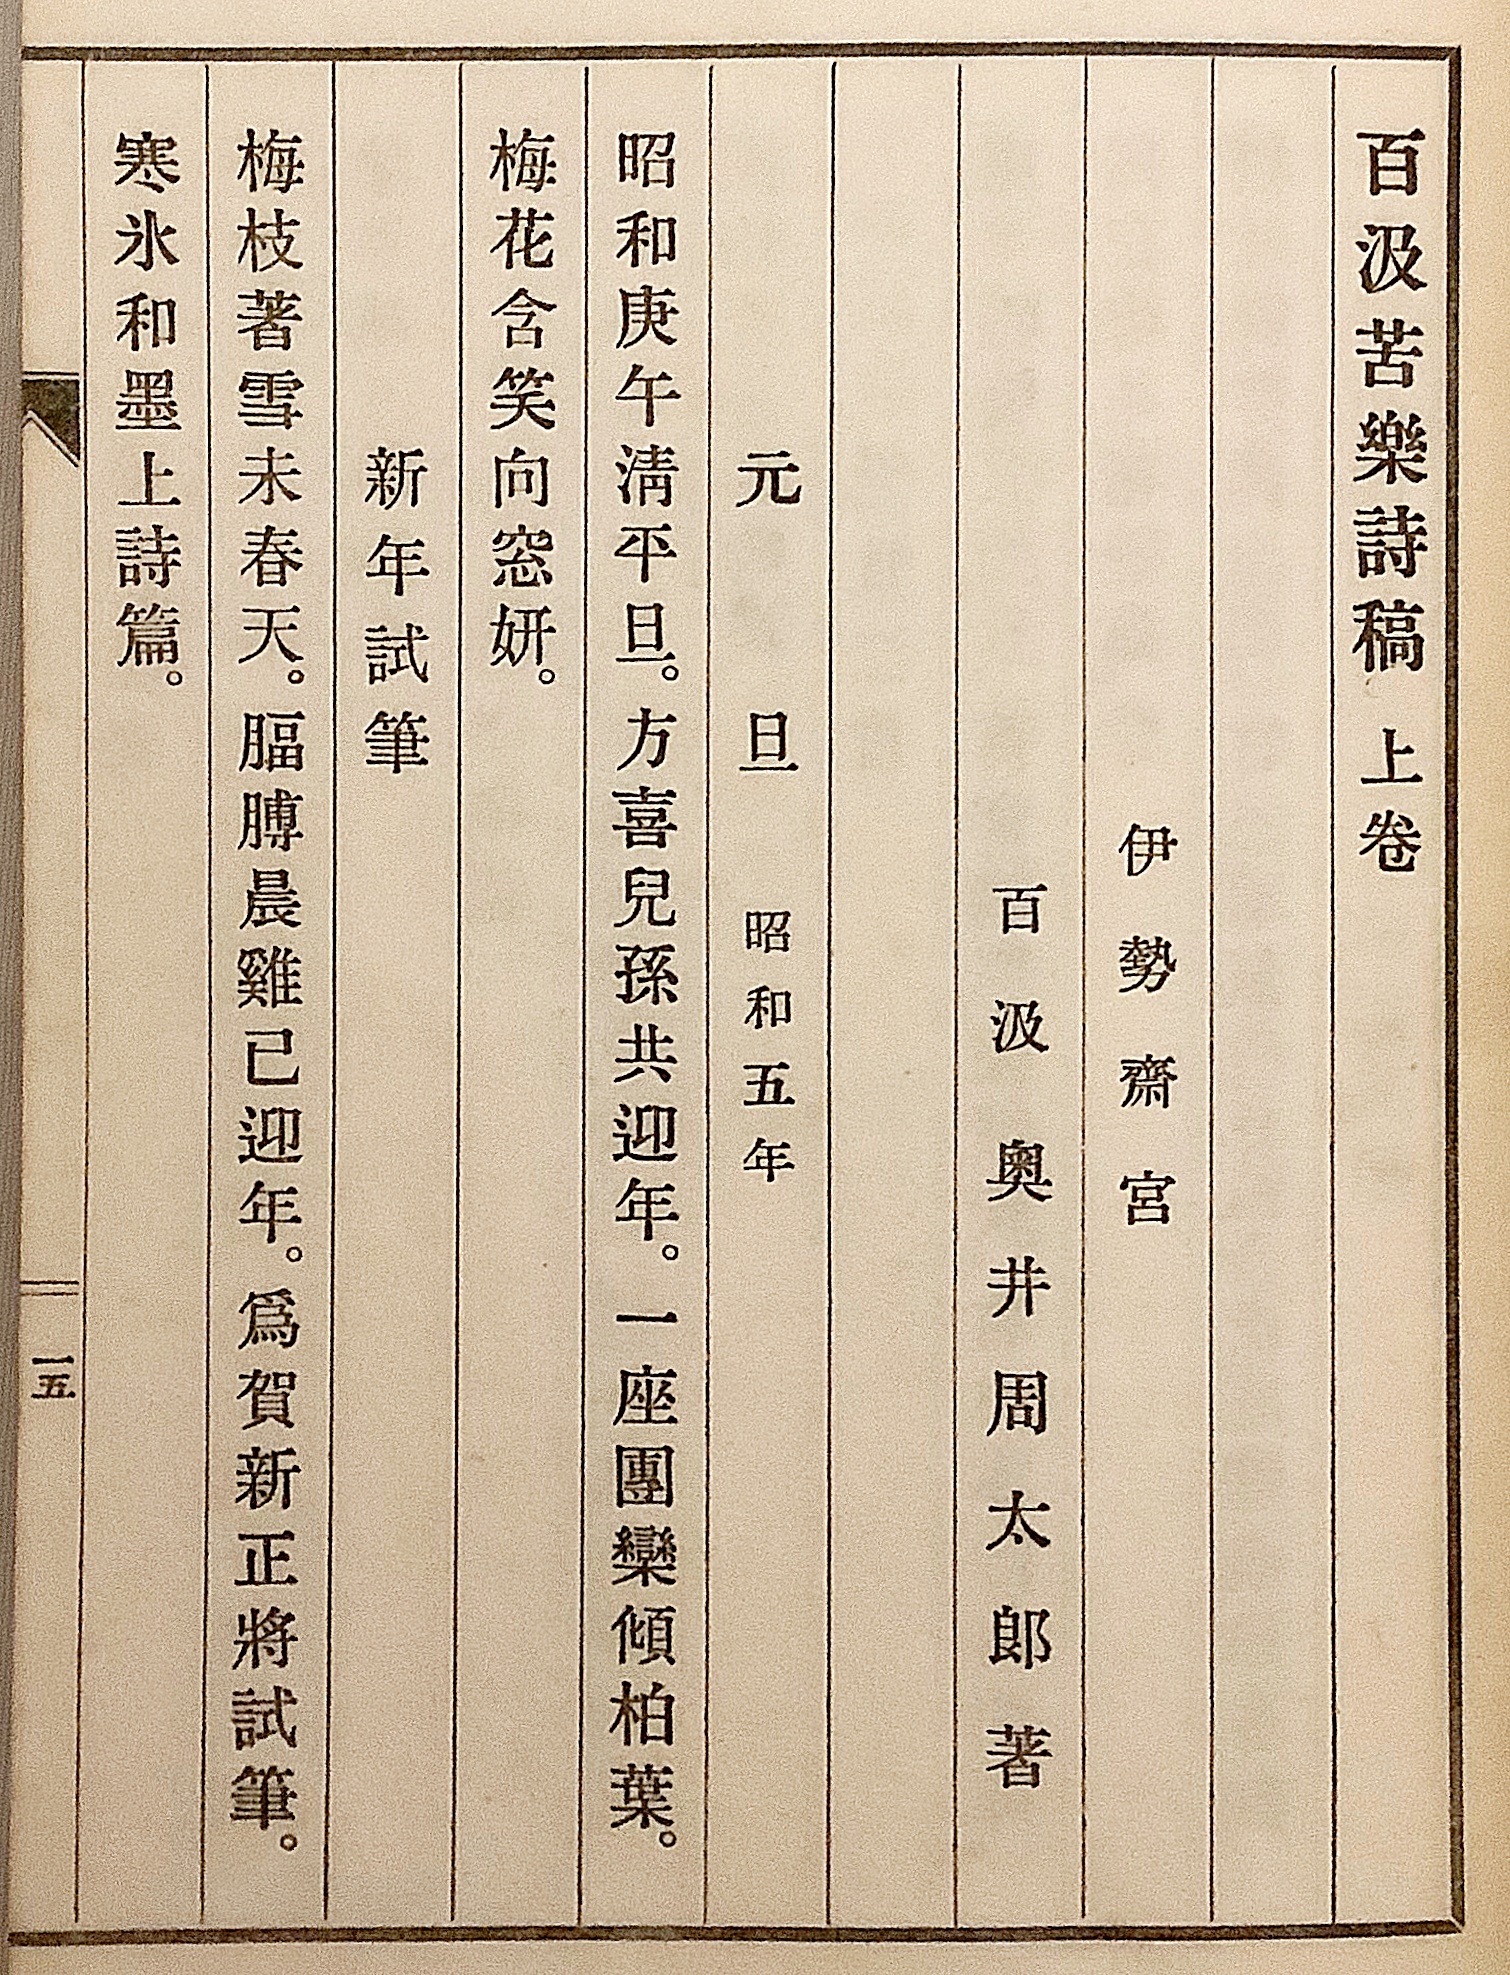 百汲苦樂詩稿 上卷
伊勢齋宮
百汲 奥井周太郎著
元旦 昭和五年
昭和庚午淸平旦。方喜兒孫共迎年。一座團欒傾柏葉。
梅花含笑向窓妍。
新年試筆
梅枝著雪未春天。腷膊晨雞已迎年。爲賀新正將試筆。
寒氷和墨上詩篇。
一五